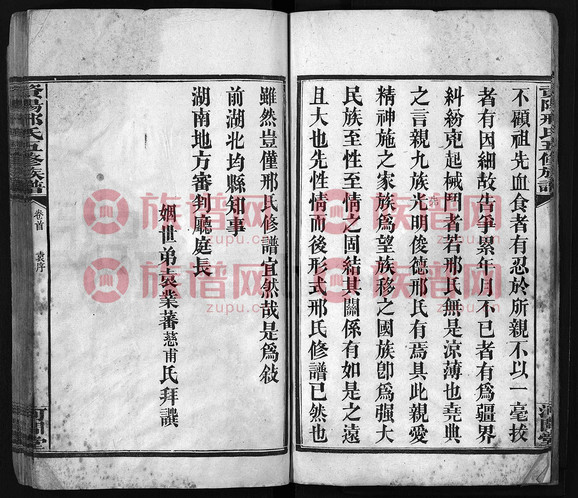 不顧祖先血食者有忍於所親不以一毫拔
者有因細故告爭累年月不已者有爲疆界
糾紛克起械鬥者若邢氏無是涼薄也堯典
之言親九族光明俊德邢氏有焉具此親愛
精神施之家族爲望族移之國族卽爲強大
民族至性至情之固結其關係有如是之遠
且大也先性情而後形式邢氏修譜已然也
雖然豈僅邢氏修譜宜然哉是爲敍
前湖北均縣知事
湖南地方審判廳庭長
姻世弟袁業蕃慈甫氏拜譔
資陽邢氏五修族譜
卷首
袁序
河間堂
族谱网
zupu.cn